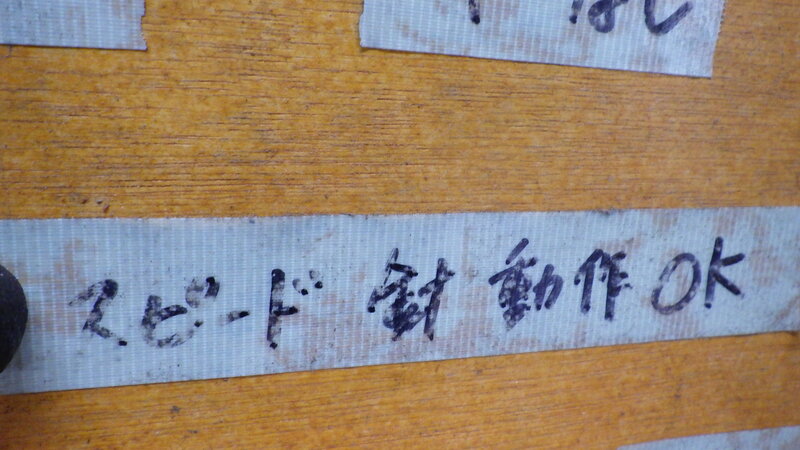 なし
スピード 針 動作 OK